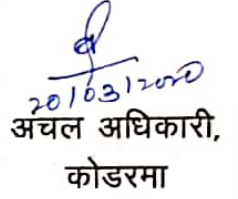 20/03/2020
अंचल अधिकारी,
कोडरमा